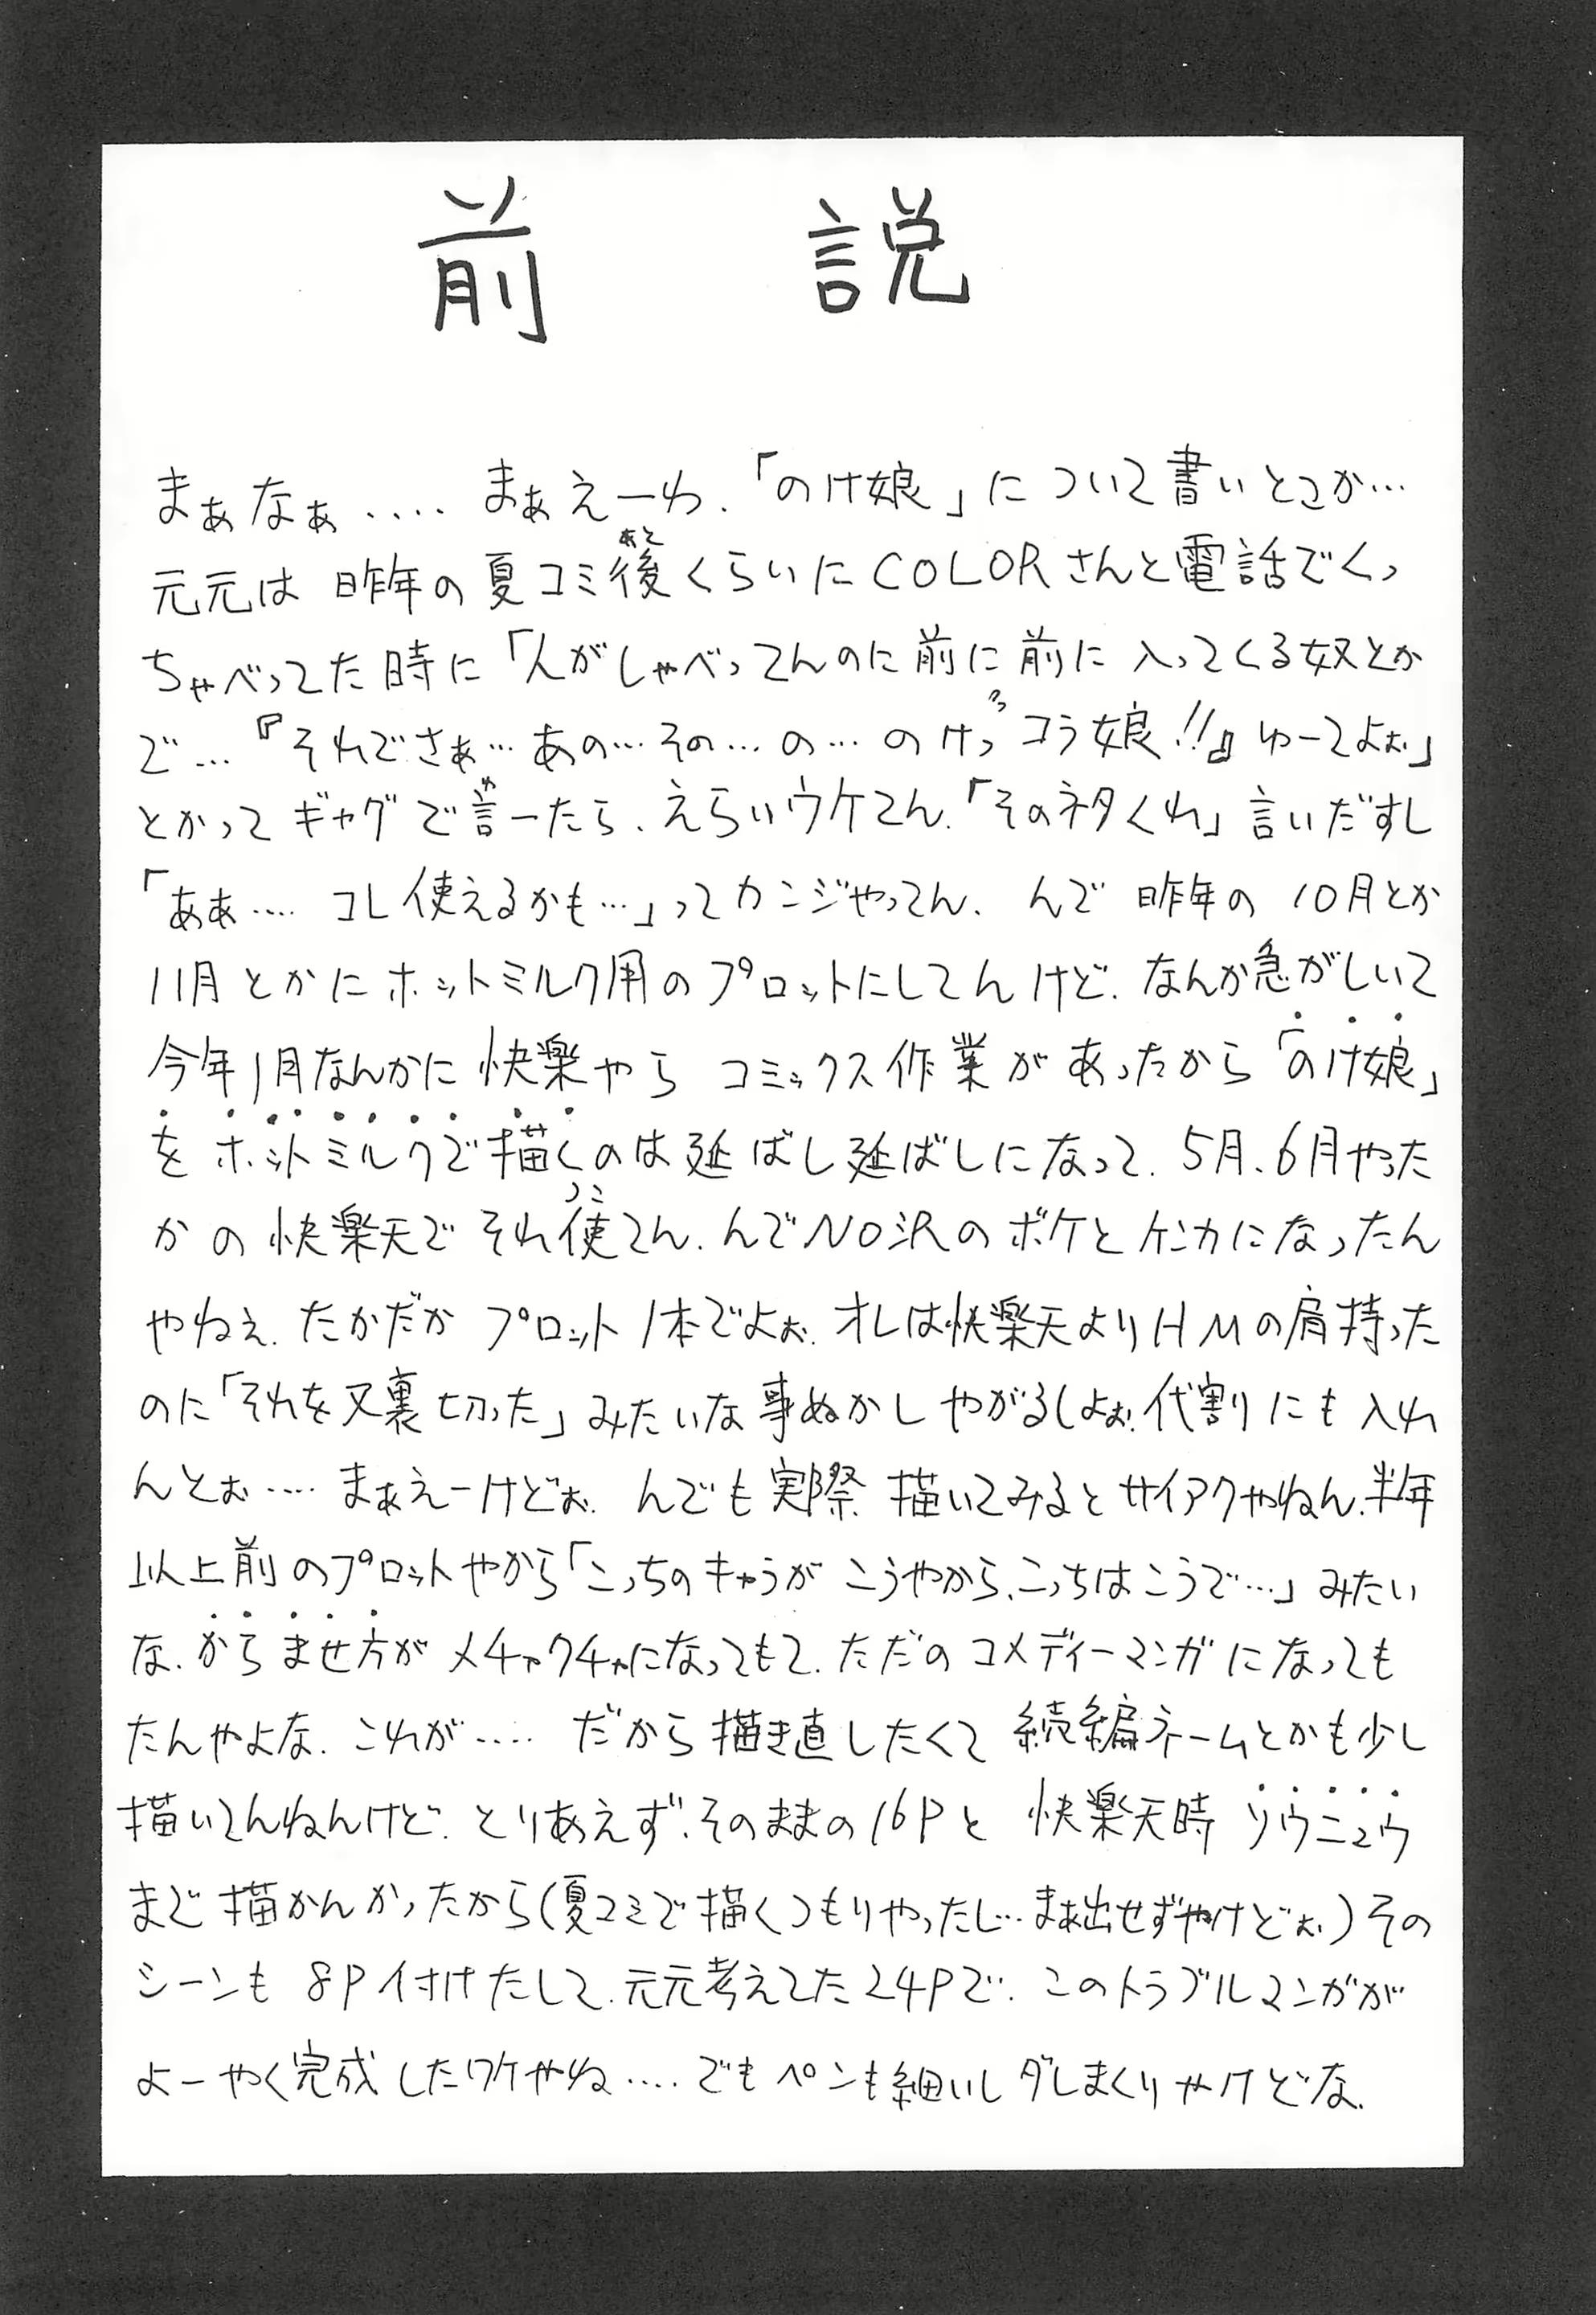 前説
まぁなぁ‥‥ まぁえーわ、「のけ娘」について書いとこか…
元元は昨年の夏コミ後くらいにCOLORさんと電話でくっ
ちゃべってた時に「人がしゃべってんのに前に前に入ってくる奴とか
で…『それでさぁ…あの…その…の…のけっコラ娘!!』ゆーてよぉ」
とかってギャグで言ーたら、えらいウケてん、「そのネタくれ」言いだすし
「ああ‥‥ コレ使えるかも…」ってカンジやってん、んで 昨年の10月とか
11月とかにホットミルク用のプロットにしてんけど、なんか急がしいて
今年1月なんかに快楽やらコミックス作業があったから「のけ娘」
をホットミルクで描くのは延ばし延ばしになって、5月、6月やった
かの快楽天でそれ使てん、んでNO沢のボケとケンカになったん
やねぇ、たかだかプロット1本でよぉ、オレは快楽天よりHMの肩持った
のに「それを又裏切った」みたいな事ぬかしやがるしよぉ、代割にも入れ
んとぉ‥‥ まぁえーけどぉ、んでも実際描いてみるとサイアクやねん、半年
以上前のプロットやから「こっちのキャラがこうやから、こっちはこうで…」みたい
な、からませ方がメチャクチャになってもて、ただのコメディーマンガになっても
たんやよな、これが‥‥ だから描き直したくて続編ネームとかも少し
描いてんねんけど、とりあえず、そのままの16Pと快楽天時ソウニュウ
まで描かんかったから(夏コミで描くつもりやったし…まぁ出せずやけどぉ)その
シーンも8P付けたして、元元考えてた24Pで、このトラブルマンガが
よーやく完成したワケやね‥‥でもペンも細いしダレまくりやけどな、